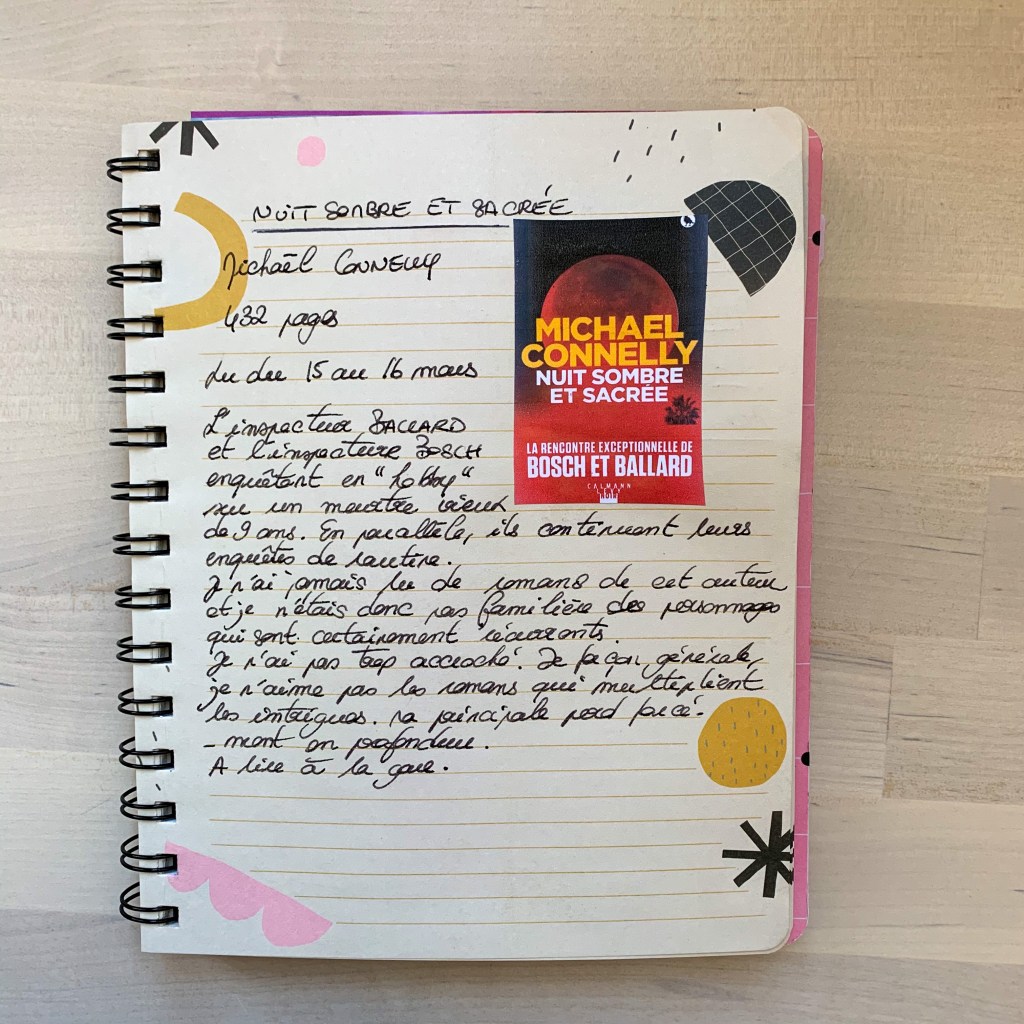 NUIT SOMBRE ET SACRÉE
Michaël CONNELLY
432 pages
Lu du 15 au 16 mars
L'inspecteur BALLARD
et l'inspecteur BOSCH
enquêtent en "hobby"
sur un meurtre vieux
de 9 ans. En parallèle, ils continuent leurs
enquêtes de routine.
Je n'ai jamais lu de romans de cet auteur
et je n'étais donc pas familière des personnages
qui sont certainement récurrents.
Je n'ai pas trop accroché. De façon générale,
je n'aime pas les romans qui multiplient
les intrigues. La principale perd forcé-
-ment en profondeur.
A lire à la gare.
MICHAEL
CONNELLY
NUIT SOMBRE
ET SACRÉE
LA RENCONTRE EXCEPTIONNELLE DE
BOSCH ET BALLARD
CALMANN
LEVY